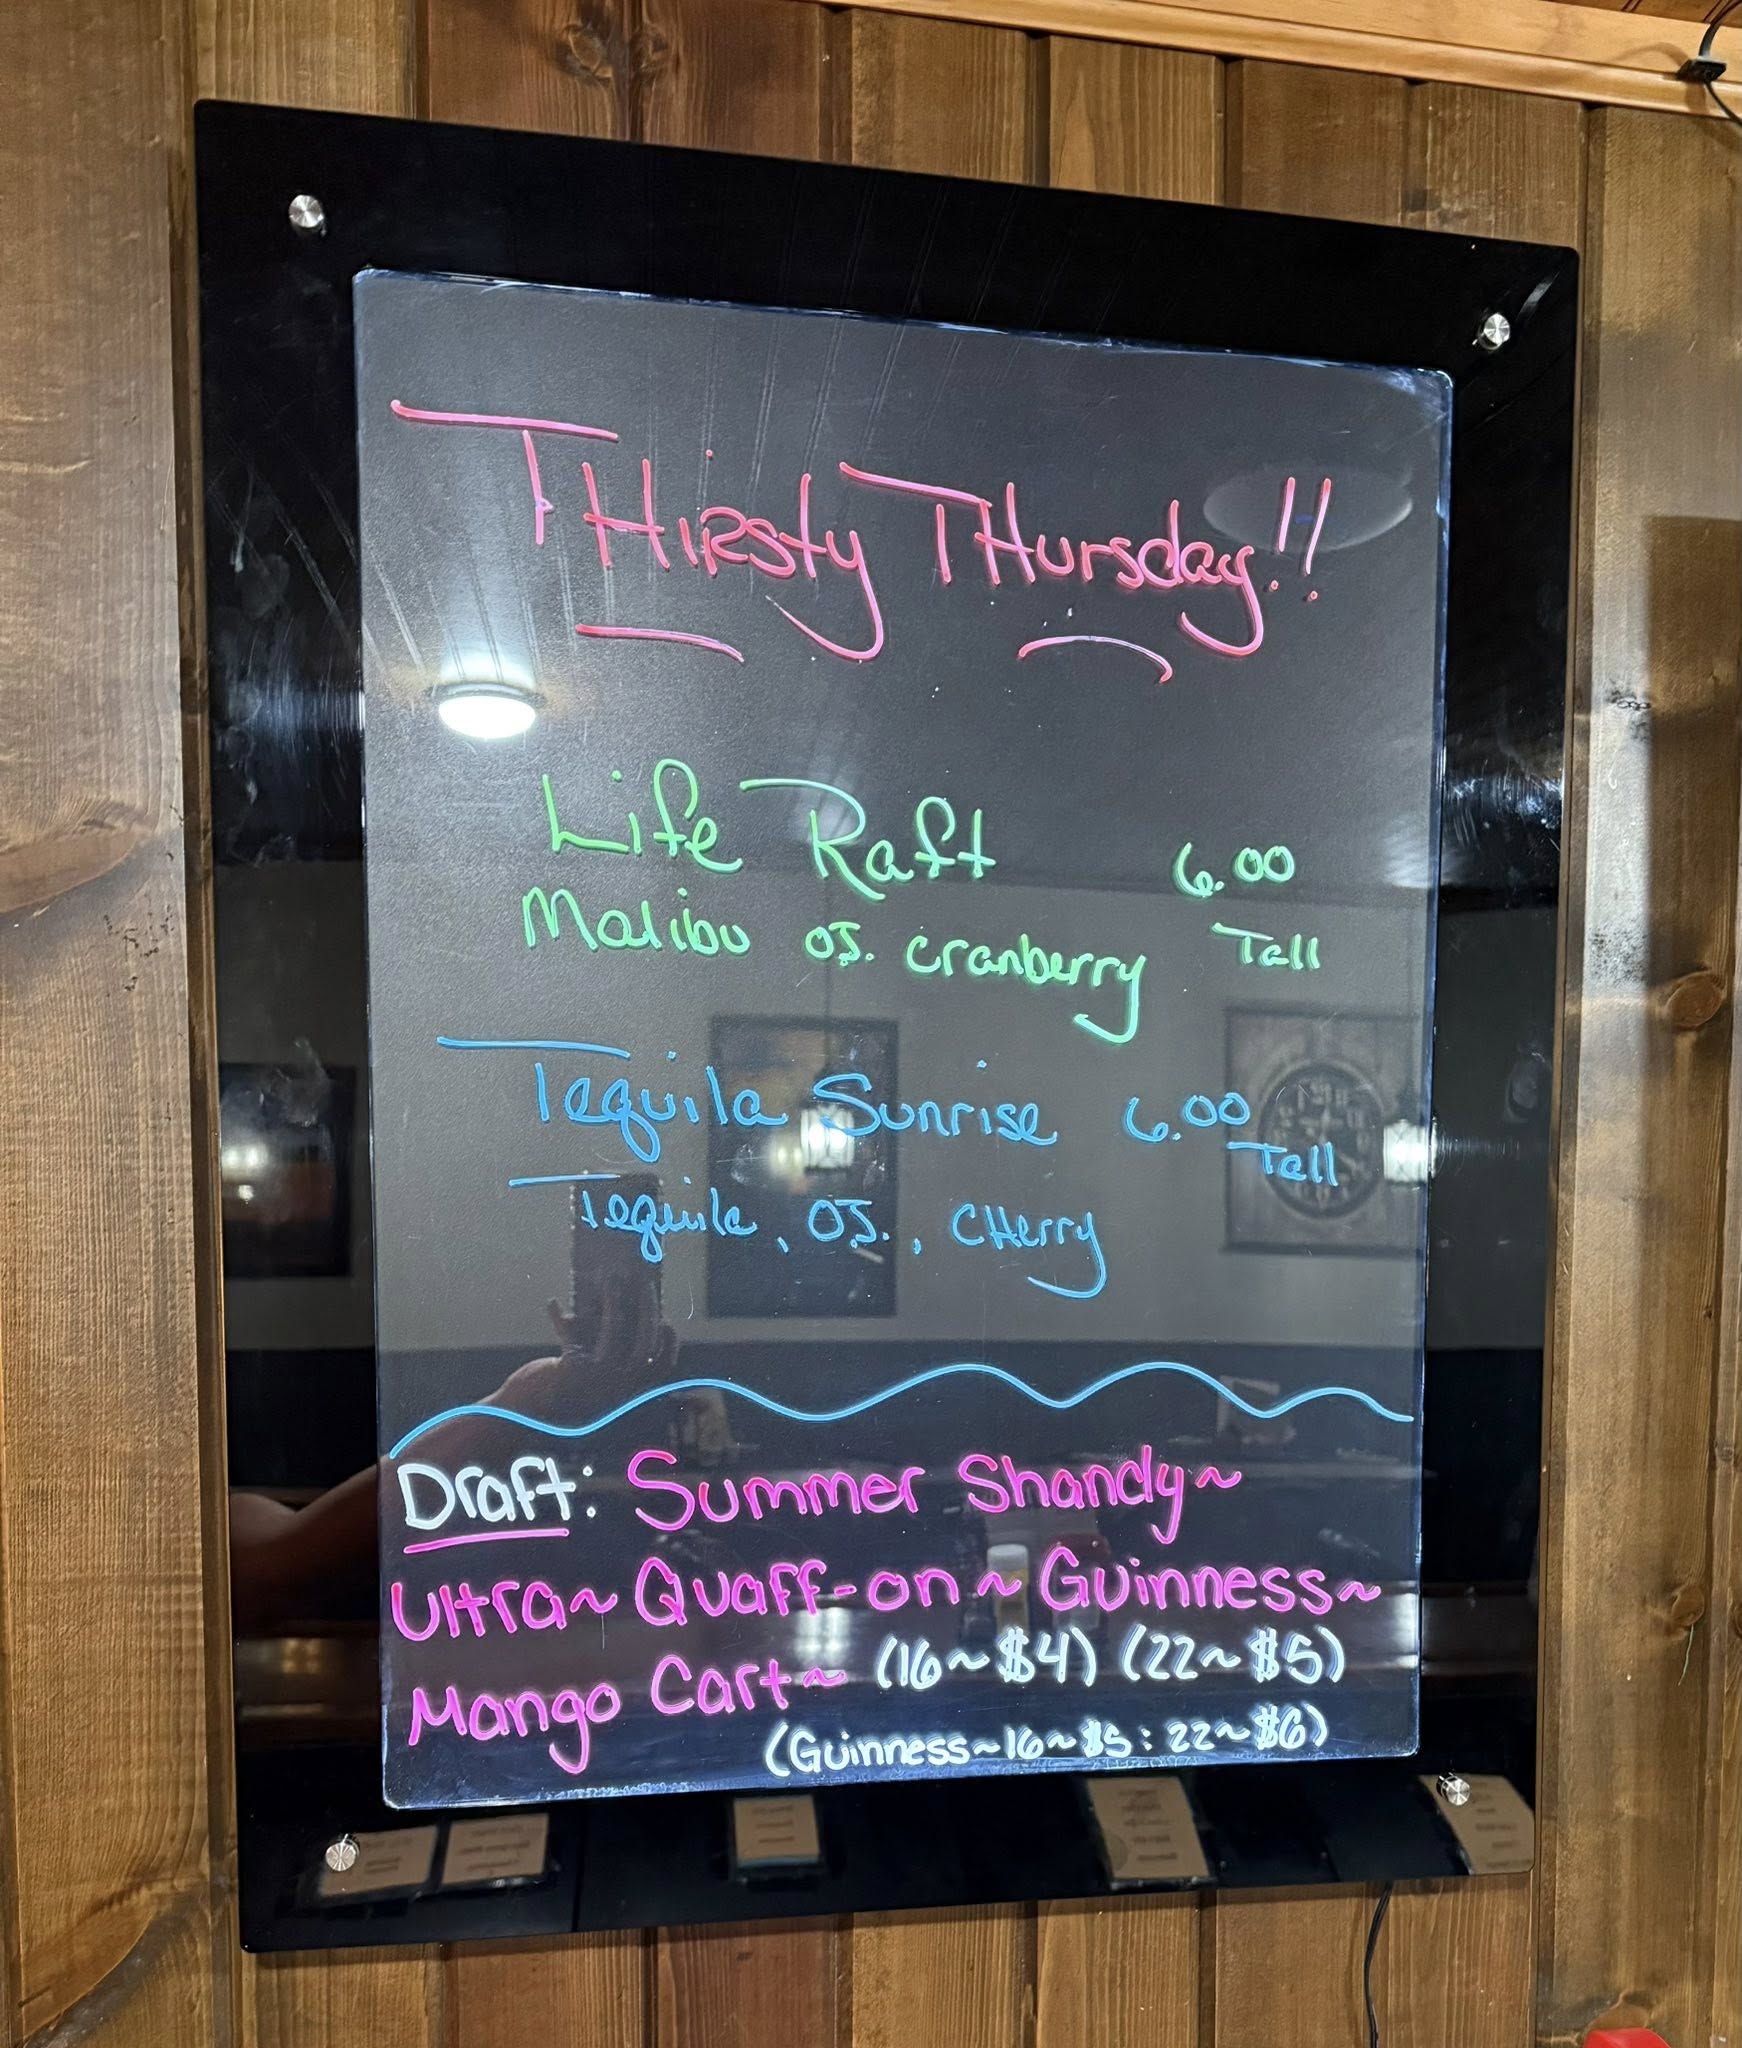 THirsty THursday!!
Life Raft 6.00
Malibu OJ. cranberry Tall
Tequila Sunrise 6.00
Tall
Tequila, OJ., CHerry
Draft: Summer Shandy~
Ultra~ Quaff-on ~ Guinness~
Mango Cart~ (16~$4) (22~$5)
(Guinness~16~$5: 22~$6)